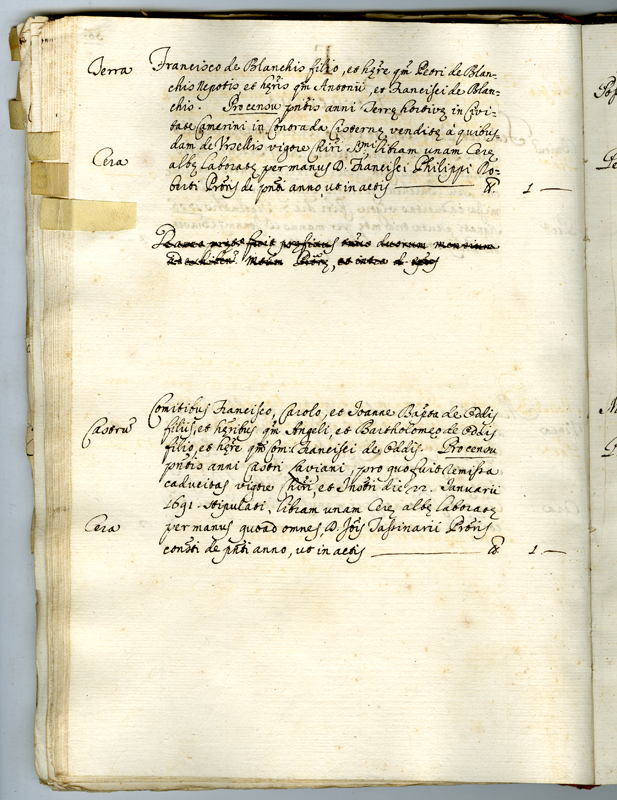 Terra Francisco de Blanchis filio, et hęre qm Petri de Blan-
chis Nepotis et hęris qm Antonii, et Francisci de Blan-
chis. Pro censu pntis anni Terrę hortivę in Civi-
tate Camerini in Contrada Cisternę venditę a quibus
dam de Ursellis vigore libram unam Cerę
Cera albę laboratę per manus D. Francisci Philippi Ro-
berti Proris de pnti anno, ut in actis ℔. 1 —
Comitibus Francisco, Carolo, et Joanne Bapta de Oddis
Castrũ filiis, et hęribus qm Angeli, et Bartholomeo de Oddis
filio, et hęre qm Com: Francisci de Oddis. Pro censu
pntis anni Castri Laviani, pro quo fuit remissa
caducitas vigore Chiri, et Instri die 22. Januarii
1691. stipulati, libram unam Cerę albę laboratę
Cera per manus quoad omnes, D. Jois Tassinarii Proris
constti de pnti anno, ut in actis ℔. 1 —